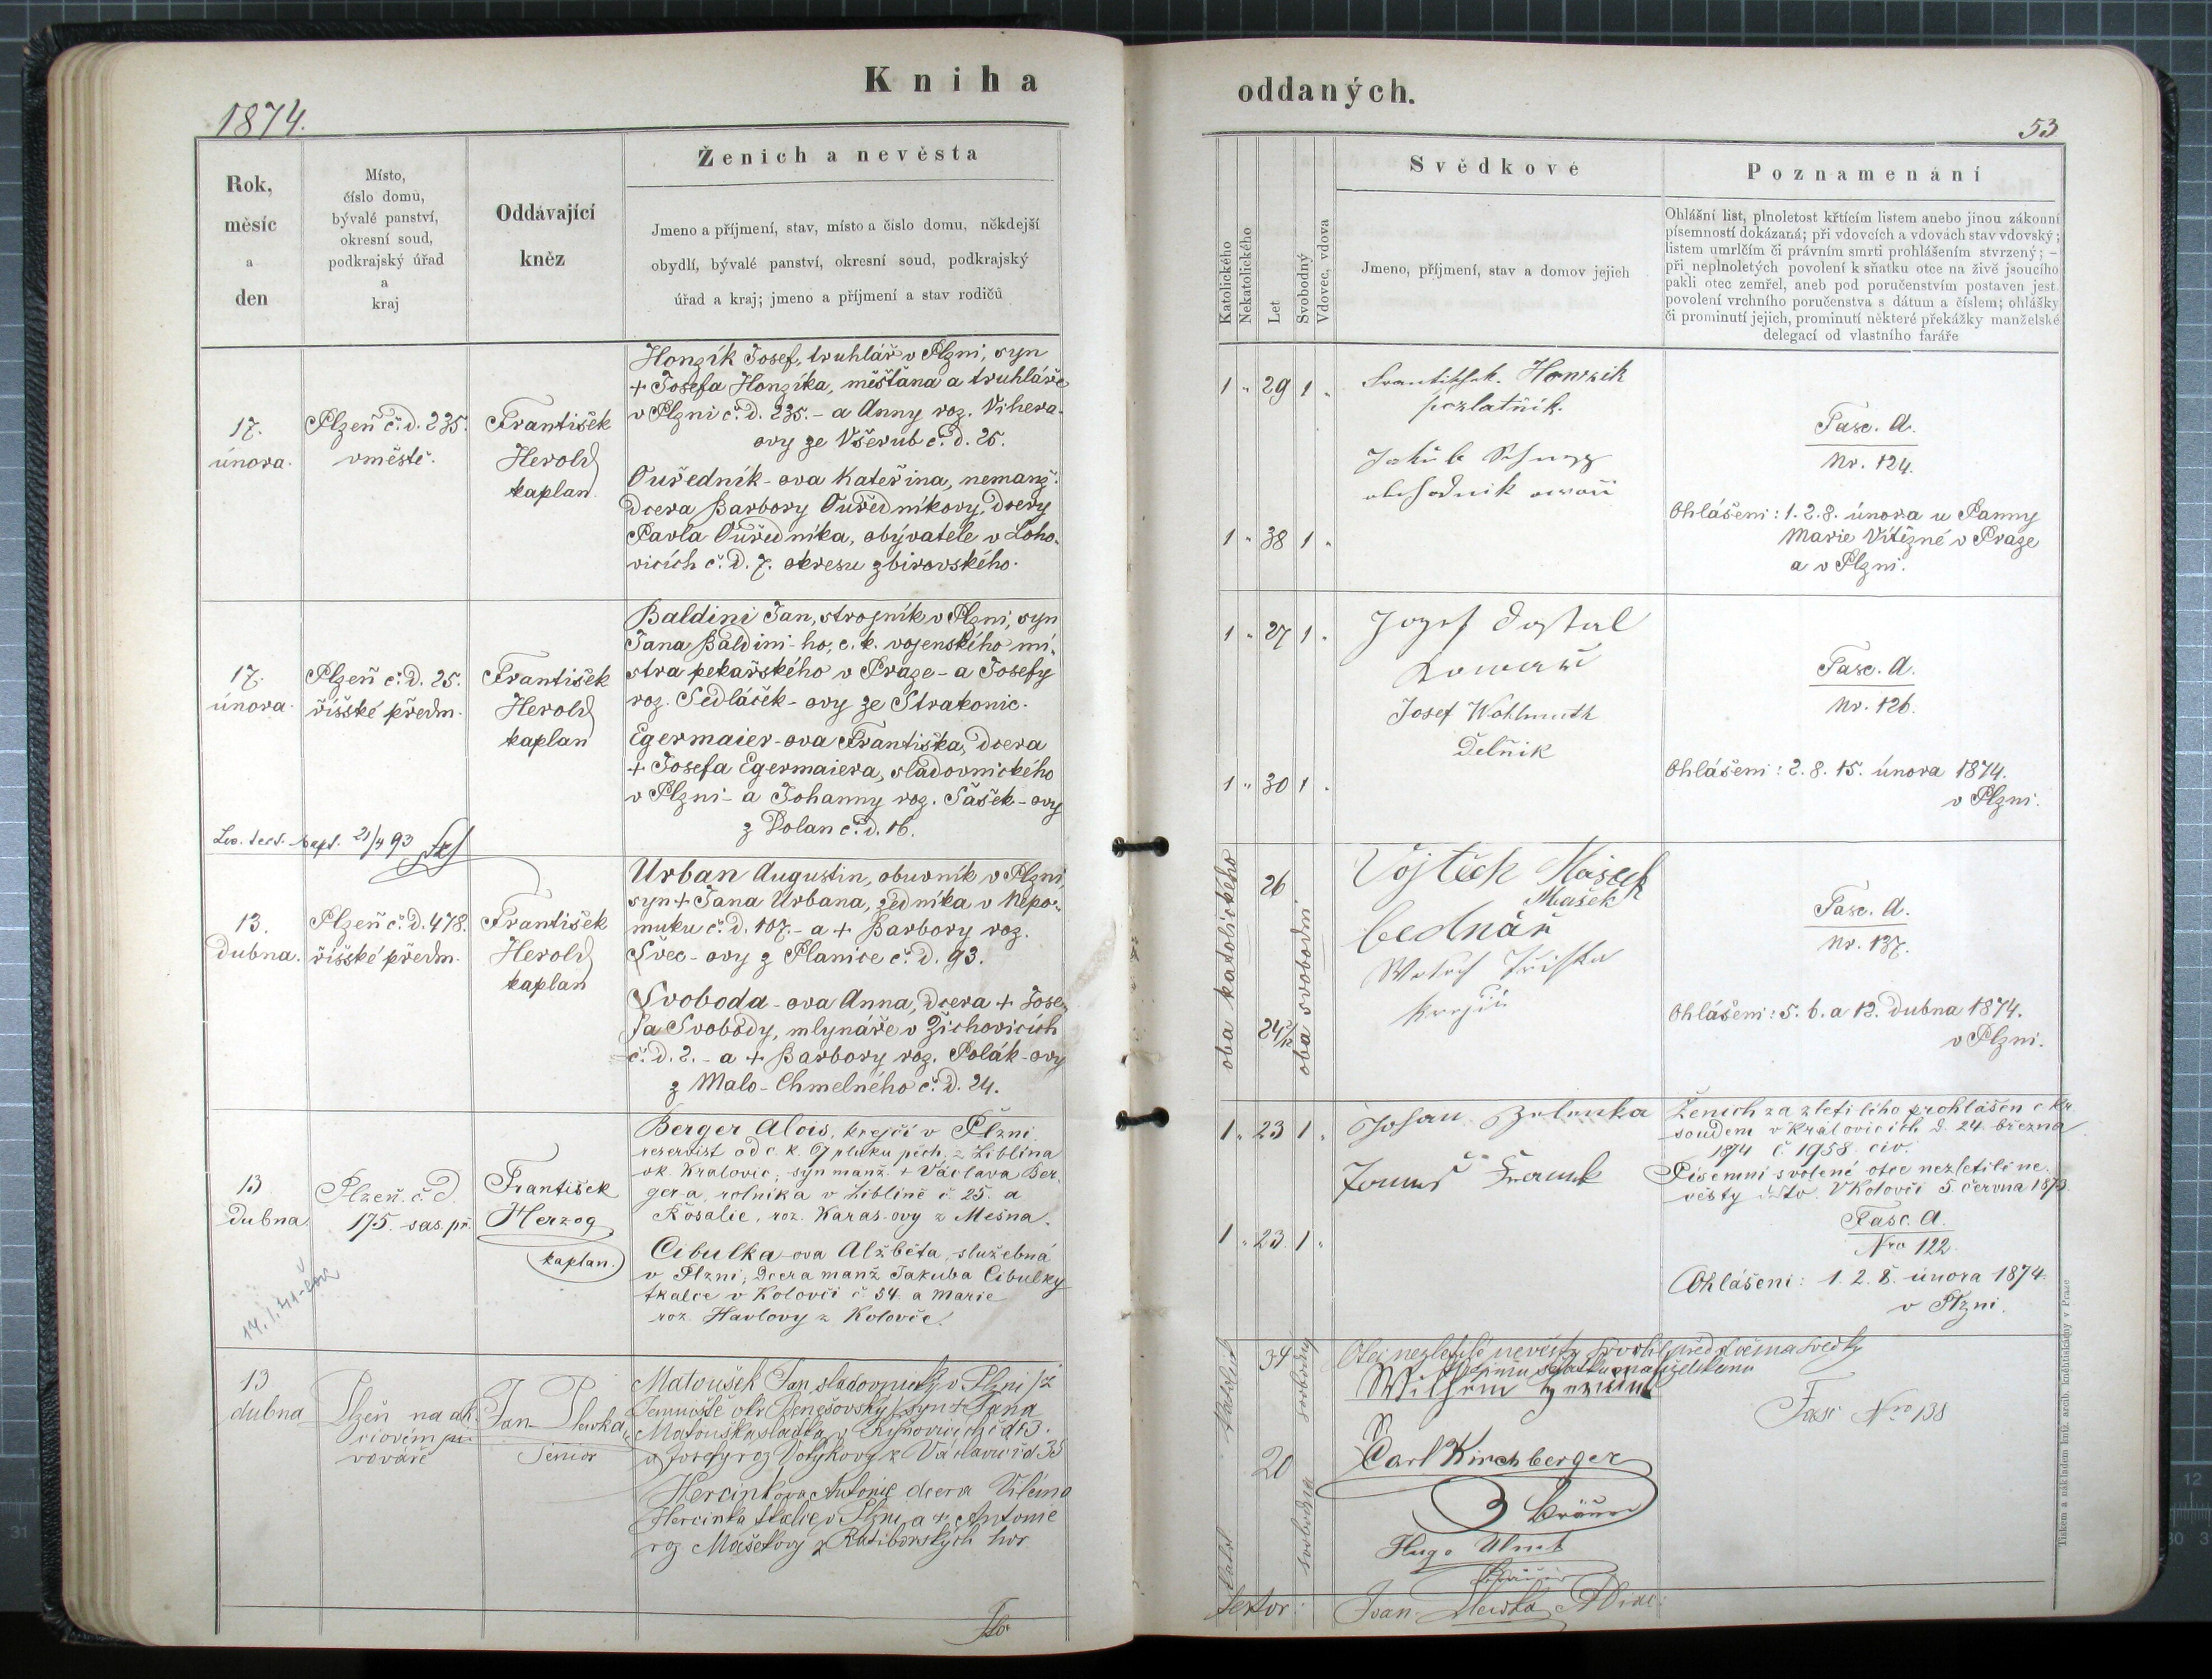 Kniha
1874.
Rok,
měsíc
a
den
Místo,
číslo domu,
bývalé panství,
okresní soud,
podkrajský úřad
a
kraj
Oddávající
kněz
Ženich a nevěsta
Jmeno a příjmení, stav, místo a číslo domu, někdejší
obydlí, bývalé panství, okresní soud, podkrajský
úřad a kraj; jmeno a příjmení a stav rodičů
17.
února.
Plzeň č. d. 235.
v městě.
František
Herold
kaplan.
Honzík Josef, truhlář v Plzni, syn
+ Josefa Honzíka, měšťana a truhláře
v Plzni č. d. 235. – a Anny roz. Vihera-
ovy ze Všerub č. d. 25.
Ouředník-ova Kateřina, nemanž.
dcera Barbory Ouředníkovy, dcery
Pavla Ouředníka, obývatele v Loho-
vicích č. d. 7. okresu zbirovského.
17.
února.
Plzeň č. d. 25.
říšské předm.
František
Herold
kaplan
Baldini Jan, strojník v Plzni, syn
Jana Baldini-ho, c. k. vojenského mi-
stra pekařského v Praze – a Josefy
roz. Sedláček-ovy ze Strakonic.
Egermaier-ova Františka, dcera
+ Josefa Egermaiera, sladovnického
v Plzni – a Johanny roz. Šašek-ovy
z Dolan č. d. 16.
bapt. 21/4 93
13.
dubna.
Plzeň č. d. 478.
říšské předm.
František
Herold
kaplan
Urban Augustin, obuvník v Plzni,
syn + Jana Urbana, zedníka v Nepo-
muku č. d. 107. – a + Barbory roz.
Švec-ovy z Planice č. d. 93.
Svoboda-ova Anna, dcera + Jose-
fa Svobody, mlynáře v Žichovicích
č. d. 2. – a + Barbory roz. Polák-ovy
z Malo-Chmelného č. d. 24.
13
dubna
Plzeň. č. d.
175. sas. př.
František
Herzog
kaplan.
Berger Alois, krejčí v Plzni
reservist od c. k. pluku pěch. z Liblína
ok. Kralovic; syn manž. + Václava Ber-
ger-a, rolníka v Liblíně č 25. a
Rosalie, roz. Karas-ovy z Mešna.
Cibulka-ova Alžběta, služebná
v Plzni, dcera manž Jakuba Cibulky
tkalce v Kolovči č 54 a Marie
roz. Havlovy z Kolovče.
13
dubna
Plzeň na ak-
ciovém pi-
vováře
Jan Plevka
Senior
Matoušek Jan sladovnický v Plzni /z
okr. Benešovský/ syn + Jana
Matouška sladka v č d 13.
a Josefy roz Votýkovy z Václavic č d 35
Hercinkova Antonie dcera Viléma
Hercinka tkalce v Plzni a + Antonie
roz Maškovy z Ratibořských hor
oddaných.
53
Katolického
Nekatolického
Let
Svobodný
Vdovec, vdova
Svědkové
Jmeno, příjmení, stav a domov jejich
Poznamenání
Ohlášní list, plnoletost křtícím listem anebo jinou zákonní
písemností dokázaná; při vdovcích a vdovách stav vdovský
listem umrlčím či právním smrti prohlášením stvrzený; –
při neplnoletých povolení k sňatku otce na živě jsoucího
pakli otec zemřel, aneb pod poručenstvím postaven jest
povolení vrchního poručenstva s dátum a číslem; ohlášky
či prominutí jejich, prominutí některé překážky manželské
delegací od vlastního faráře
1 " 29 1 "
Honzik
pozlatník.
Jakub
obchodnik
1 " 38 1 "
Fasc. A.
Nr. 124.
Ohlášeni: 1. 2. 8. února u Panny
Marie Vítězné v Praze
a v Plzni.
1 " 27 1 "
Jozef Dostal
Josef Wohlmuth
Dělník
1 " 30 1 "
Fasc. A.
Nr. 126.
Ohlášeni: 2. 8. 15. února 1874.
v Plzni.
oba katolického
26
24
oba svobodni
Vojtěch Mašek
Mašek
bednář
krejči
Fasc. A.
Nr. 137.
Ohlášeni: 5. 6. a 12. dubna 1874.
v Plzni.
1 " 23 1 "
Johan Zelenka
1 " 23 1 "
Ženich za zletilého prohlášen c. kr.
soudem v Kralovicích d. 24. března
1874 č 1958 civ.
Písemní svolené otce nezletilé ne-
věsty dto. V Kolovči 5. června 1873
Fasc. A.
Nro 122
Ohlášeni: 1. 2. 8. února 1874.
v Plzni.
34
svobodný
20
svobodná
Otec nezletilé nevěsty svolil před dvěma svědky
Carl Kirchberger
Bräuer
Hugo
Fasc Nro 138
Jan Plevka
Tiskem a nákladem kníž. arcib. knihtiskárny v Praze